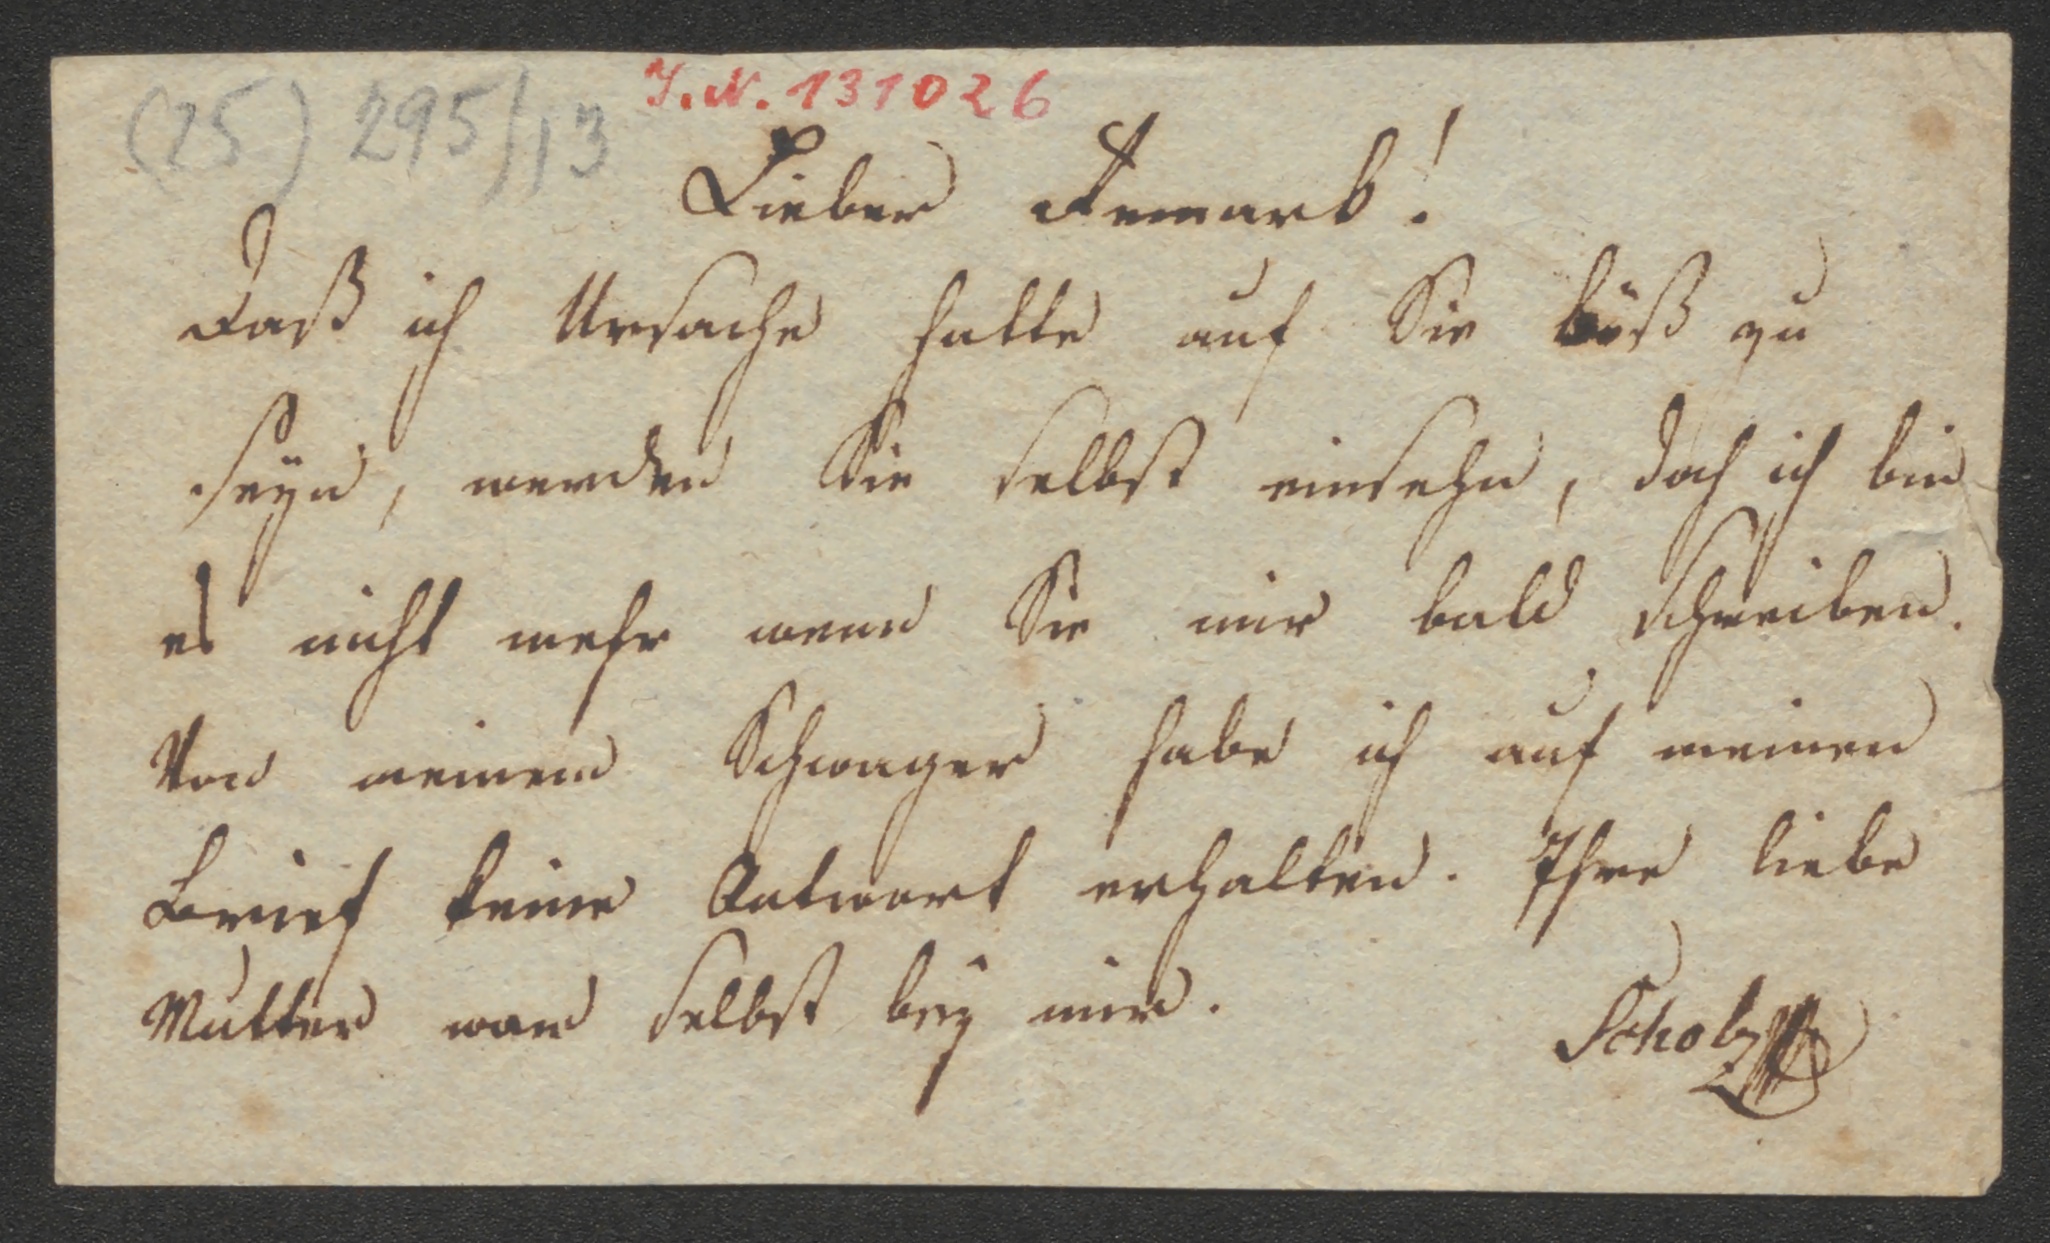 (25) 295/13
I.N. 131026
Lieber Remark!
Daß ich Ursache hatte auf Sie böß zu
seyn, werden Sie selbst einsehn, doch ich bin
es nicht mehr wenn Sie mir bald schreiben.
Von meinem Schwager habe ich auf meinen
Brief keine Antwort erhalten. Ihre liebe
Mutter war selbst bey mir.
Scholz